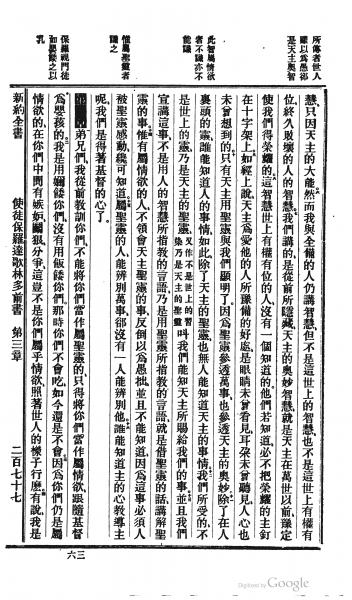 慧只因天主的大能然而我與全備的人仍講智慧但不是這世上的智慧也不是這世上有權有
位終久敗壞的人的智慧我們講的是從前所隱藏天主的奧妙智慧就是天主在萬世以前豫定
使我們得榮耀的這智慧世上有權有位的人沒有一個知道的他們若知道必不把榮耀的主釘
在十字架上如經上說天主爲愛他的人所豫備的好處是眼睛未曾看見耳朶未曾聽見人心也
未曾想到的只有天主用聖靈與我們顯明了因爲聖靈參透萬事也參透天主的奧妙除了在人
裏頭的靈誰能知道人的事情如此除了天主的聖靈也無人能知道天主的事情我們所受的不
是世上的靈乃是天主的聖靈又作不是世上的習染乃是天主的聖靈叫我們能知天主所賜給我們的事並且我們
宣講這事不是用人的智慧所指敎的言語乃是用聖靈所指敎的言語就是借聖靈的話講解聖
靈的事惟有屬情欲的人不領會天主聖靈的事反倒以爲愚拙並且不能知道因爲這事必須人
被聖靈感動纔可知道屬聖靈的人能辨別萬事卻沒有一人能辨別他誰能知道主的心敎導主
呢我們是得著基督的心了
弟兄們我從前敎訓你們不能將你們當作屬聖靈的只得將你們當作屬情欲跟隨基督
爲嬰孩的我是用嬭餧你們沒有用飯餧你們那時你們不會吃如今還是不會因爲你們仍是屬
情欲的在你們中間有嫉妒鬬狠分爭這豈不是你們屬乎情欲照著世人的樣子行麽有說我是
新約全書 使徒保羅達歌林多前書 第三章 二百七十七
六三
所傳者世人
雖以爲愚卻
是天主奧智
此智屬情欲
者不識亦不
能識
惟屬聖靈者
識之
保羅視門徒
如嬰餧之以
乳
Digitized by Google